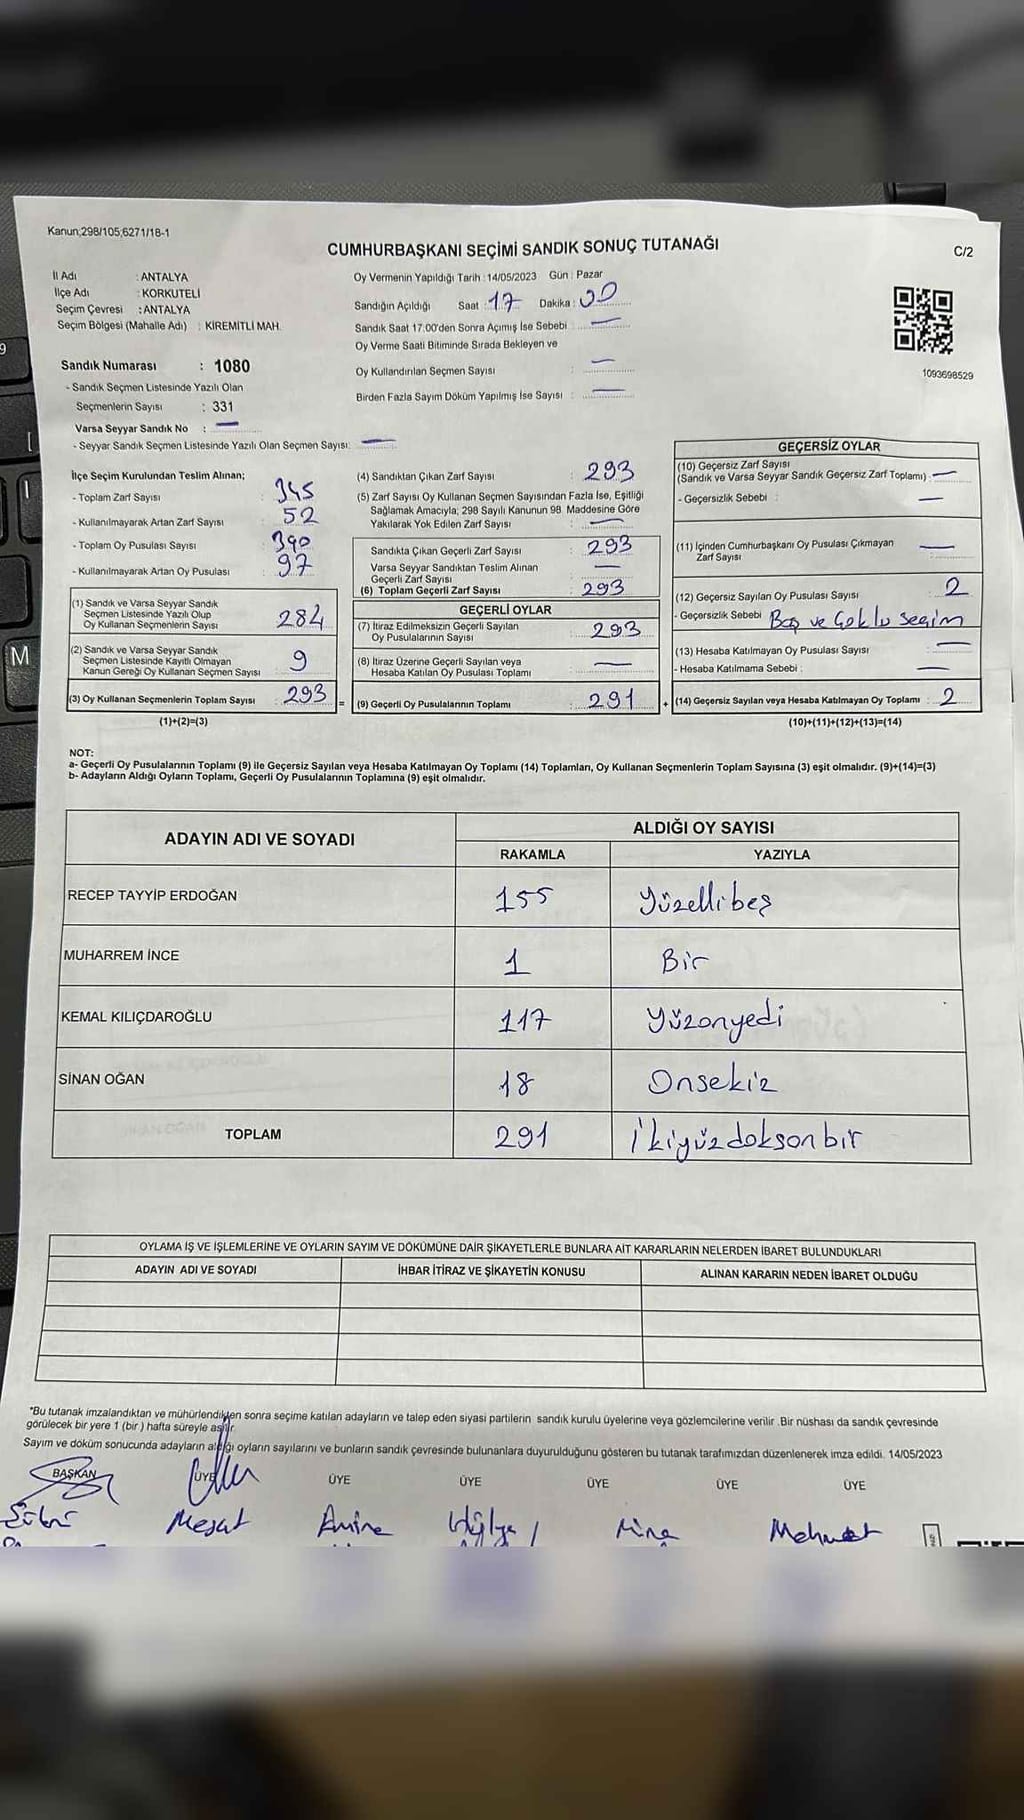 Kanun;298/105,6271/18-1
CUMHURBAŞKANI SEÇİMİ SANDIK SONUÇ TUTANAĞI
C/2
İl Adı : ANTALYA
İlçe Adı : KORKUTELİ
Seçim Çevresi : ANTALYA
Seçim Bölgesi (Mahalle Adı) : KİREMİTLİ MAH.
Oy Vermenin Yapıldığı Tarih : 14/05/2023 Gün : Pazar
Sandığın Açıldığı Saat : 17 Dakika : 00
Sandık Saat 17.00'den Sonra Açımış İse Sebebi : —
Oy Verme Saati Bitiminde Sırada Bekleyen ve
Oy Kullandırılan Seçmen Sayısı : —
Birden Fazla Sayım Döküm Yapılmış İse Sayısı : —
1093698529
Sandık Numarası : 1080
- Sandık Seçmen Listesinde Yazılı Olan
Seçmenlerin Sayısı : 331
Varsa Seyyar Sandık No : —
- Seyyar Sandık Seçmen Listesinde Yazılı Olan Seçmen Sayısı: —
İlçe Seçim Kurulundan Teslim Alınan;
- Toplam Zarf Sayısı : 345
- Kullanılmayarak Artan Zarf Sayısı : 52
- Toplam Oy Pusulası Sayısı : 390
- Kullanılmayarak Artan Oy Pusulası : 97
(1) Sandık ve Varsa Seyyar Sandık
Seçmen Listesinde Yazılı Olup
Oy Kullanan Seçmenlerin Sayısı : 284
(2) Sandık ve Varsa Seyyar Sandık
Seçmen Listesinde Kayıtlı Olmayan
Kanun Gereği Oy Kullanan Seçmen Sayısı : 9
(3) Oy Kullanan Seçmenlerin Toplam Sayısı : 293
(1)+(2)=(3)
(4) Sandıktan Çıkan Zarf Sayısı : 293
(5) Zarf Sayısı Oy Kullanan Seçmen Sayısından Fazla İse, Eşitliği
Sağlamak Amacıyla; 298 Sayılı Kanunun 98. Maddesine Göre
Yakılarak Yok Edilen Zarf Sayısı : —
Sandıkta Çıkan Geçerli Zarf Sayısı : 293
Varsa Seyyar Sandıktan Teslim Alınan
Geçerli Zarf Sayısı : —
(6) Toplam Geçerli Zarf Sayısı : 293
GEÇERLİ OYLAR
(7) İtiraz Edilmeksizin Geçerli Sayılan
Oy Pusulalarının Sayısı : 293
(8) İtiraz Üzerine Geçerli Sayılan veya
Hesaba Katılan Oy Pusulası Toplamı : —
= (9) Geçerli Oy Pusulalarının Toplamı : 291 +
GEÇERSİZ OYLAR
(10) Geçersiz Zarf Sayısı
(Sandık ve Varsa Seyyar Sandık Geçersiz Zarf Toplamı) : —
- Geçersizlik Sebebi : —
(11) İçinden Cumhurbaşkanı Oy Pusulası Çıkmayan
Zarf Sayısı : —
(12) Geçersiz Sayılan Oy Pusulası Sayısı : 2
- Geçersizlik Sebebi : Boş ve Çoklu seçim
(13) Hesaba Katılmayan Oy Pusulası Sayısı : —
- Hesaba Katılmama Sebebi : —
(14) Geçersiz Sayılan veya Hesaba Katılmayan Oy Toplamı : 2
(10)+(11)+(12)+(13)=(14)
NOT:
a- Geçerli Oy Pusulalarının Toplamı (9) ile Geçersiz Sayılan veya Hesaba Katılmayan Oy Toplamı (14) Toplamları, Oy Kullanan Seçmenlerin Toplam Sayısına (3) eşit olmalıdır. (9)+(14)=(3)
b- Adayların Aldığı Oyların Toplamı, Geçerli Oy Pusulalarının Toplamına (9) eşit olmalıdır.
ADAYIN ADI VE SOYADI
ALDIĞI OY SAYISI
RAKAMLA YAZIYLA
RECEP TAYYİP ERDOĞAN 155 Yüzellibeş
MUHARREM İNCE 1 Bir
KEMAL KILIÇDAROĞLU 117 Yüzonyedi
SİNAN OĞAN 18 Onsekiz
TOPLAM 291 İkiyüzdoksonbir
OYLAMA İŞ VE İŞLEMLERİNE VE OYLARIN SAYIM VE DÖKÜMÜNE DAİR ŞİKAYETLERLE BUNLARA AİT KARARLARIN NELERDEN İBARET BULUNDUKLARI
ADAYIN ADI VE SOYADI İHBAR İTİRAZ VE ŞİKAYETİN KONUSU ALINAN KARARIN NEDEN İBARET OLDUĞU
*Bu tutanak imzalandıktan ve mühürlendikten sonra seçime katılan adayların ve talep eden siyasi partilerin sandık kurulu üyelerine veya gözlemcilerine verilir .Bir nüshası da sandık çevresinde
görülecek bir yere 1 (bir ) hafta süreyle asılır.
Sayım ve döküm sonucunda adayların aldığı oyların sayılarını ve bunların sandık çevresinde bulunanlara duyurulduğunu gösteren bu tutanak tarafımızdan düzenlenerek imza edildi. 14/05/2023
BAŞKAN ÜYE ÜYE ÜYE ÜYE ÜYE ÜYE
Mesut Emine Hülya Mine Mehmet
M
9